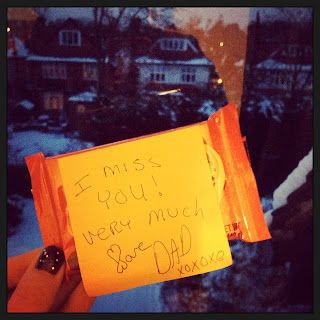 I miss
YOU!
very much
Love
DAD
xoxoxo